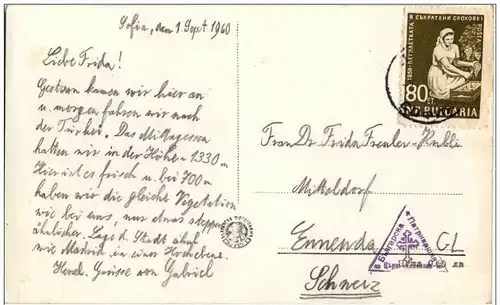 Sofia, den 1 Sept. 1960
Liebe Frida!
Gestern kamen wir hier an
u. morgen fahren wir nach
der Türkei. Das Mittagessen
hatten wir in der Höhe 1330 m
Hier ist es frisch u. bei 700 m
haben wir die gleiche Vegetation
wie bei uns, nur etwas steppen
ähnlicher. Lage d. Stadt ähnl.
wie Madrid, in einer Hochebene.
Herzl. Grüsse von Gabriel
Frau Dr. Frida Freuler-
Mitteldorf
Ennenda GL
Schweiz
1958-ПЕТИЛЕТКАТА В СЪКРАТЕНИ СРОКОВЕ
POSTA
80 СТ
NR BULGARIA
Българска Патриаршия